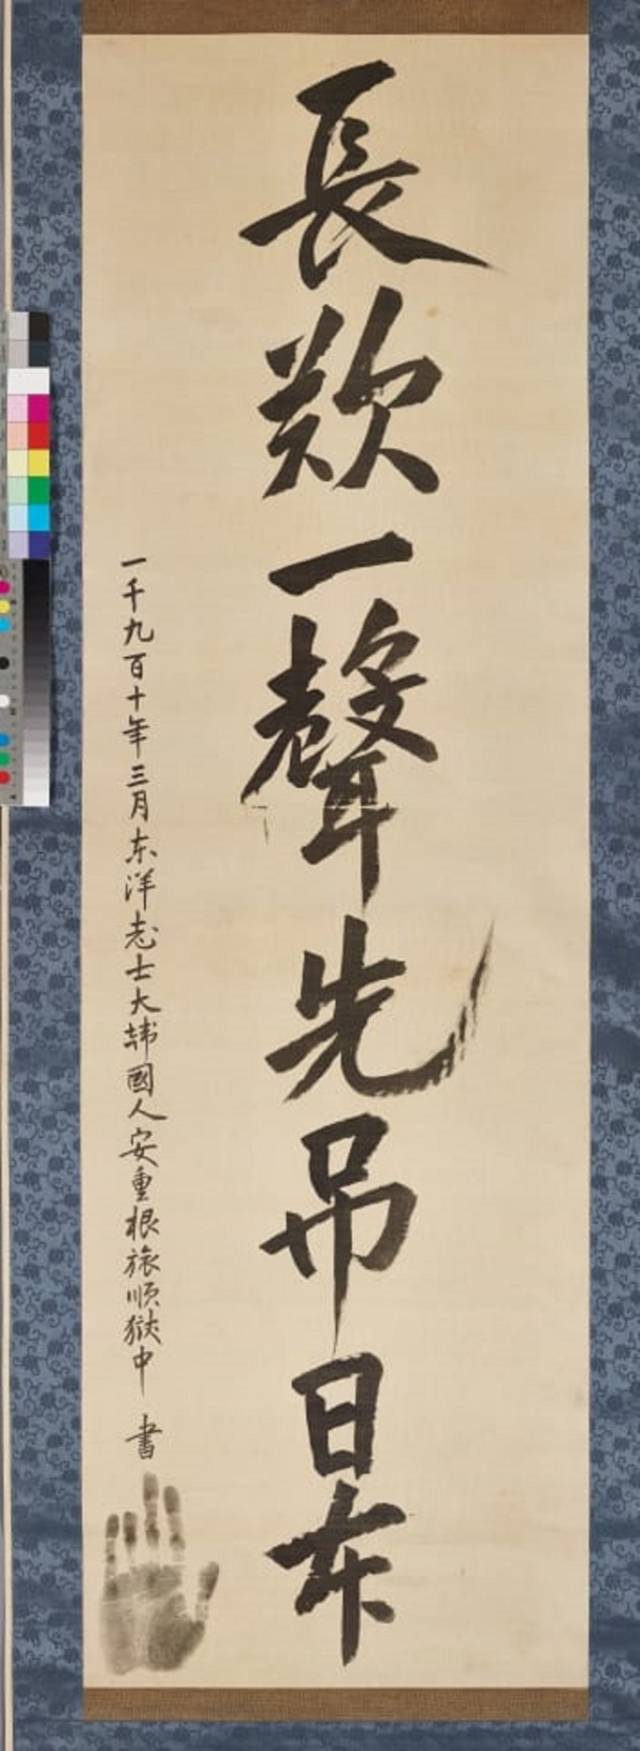 長歎一聲先吊日本
一千九百十年三月 东洋志士大韩國人安重根 旅顺獄中 書